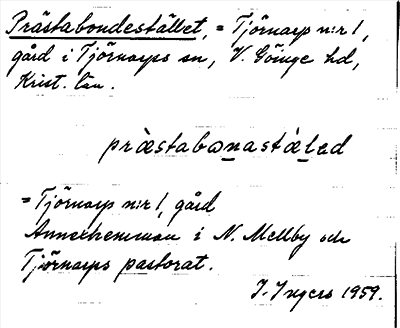 Prästabondestället, = Tjörnarp n:r 1,
gård i Tjörnarps sn, V. Göinge hd,
Krist. län.
præ̀stabωnastæ̀led
= Tjörnarp n:r 1, gård
Annexhemman i N. Mellby och
Tjörnarps pastorat.
I. Ingers 1959.